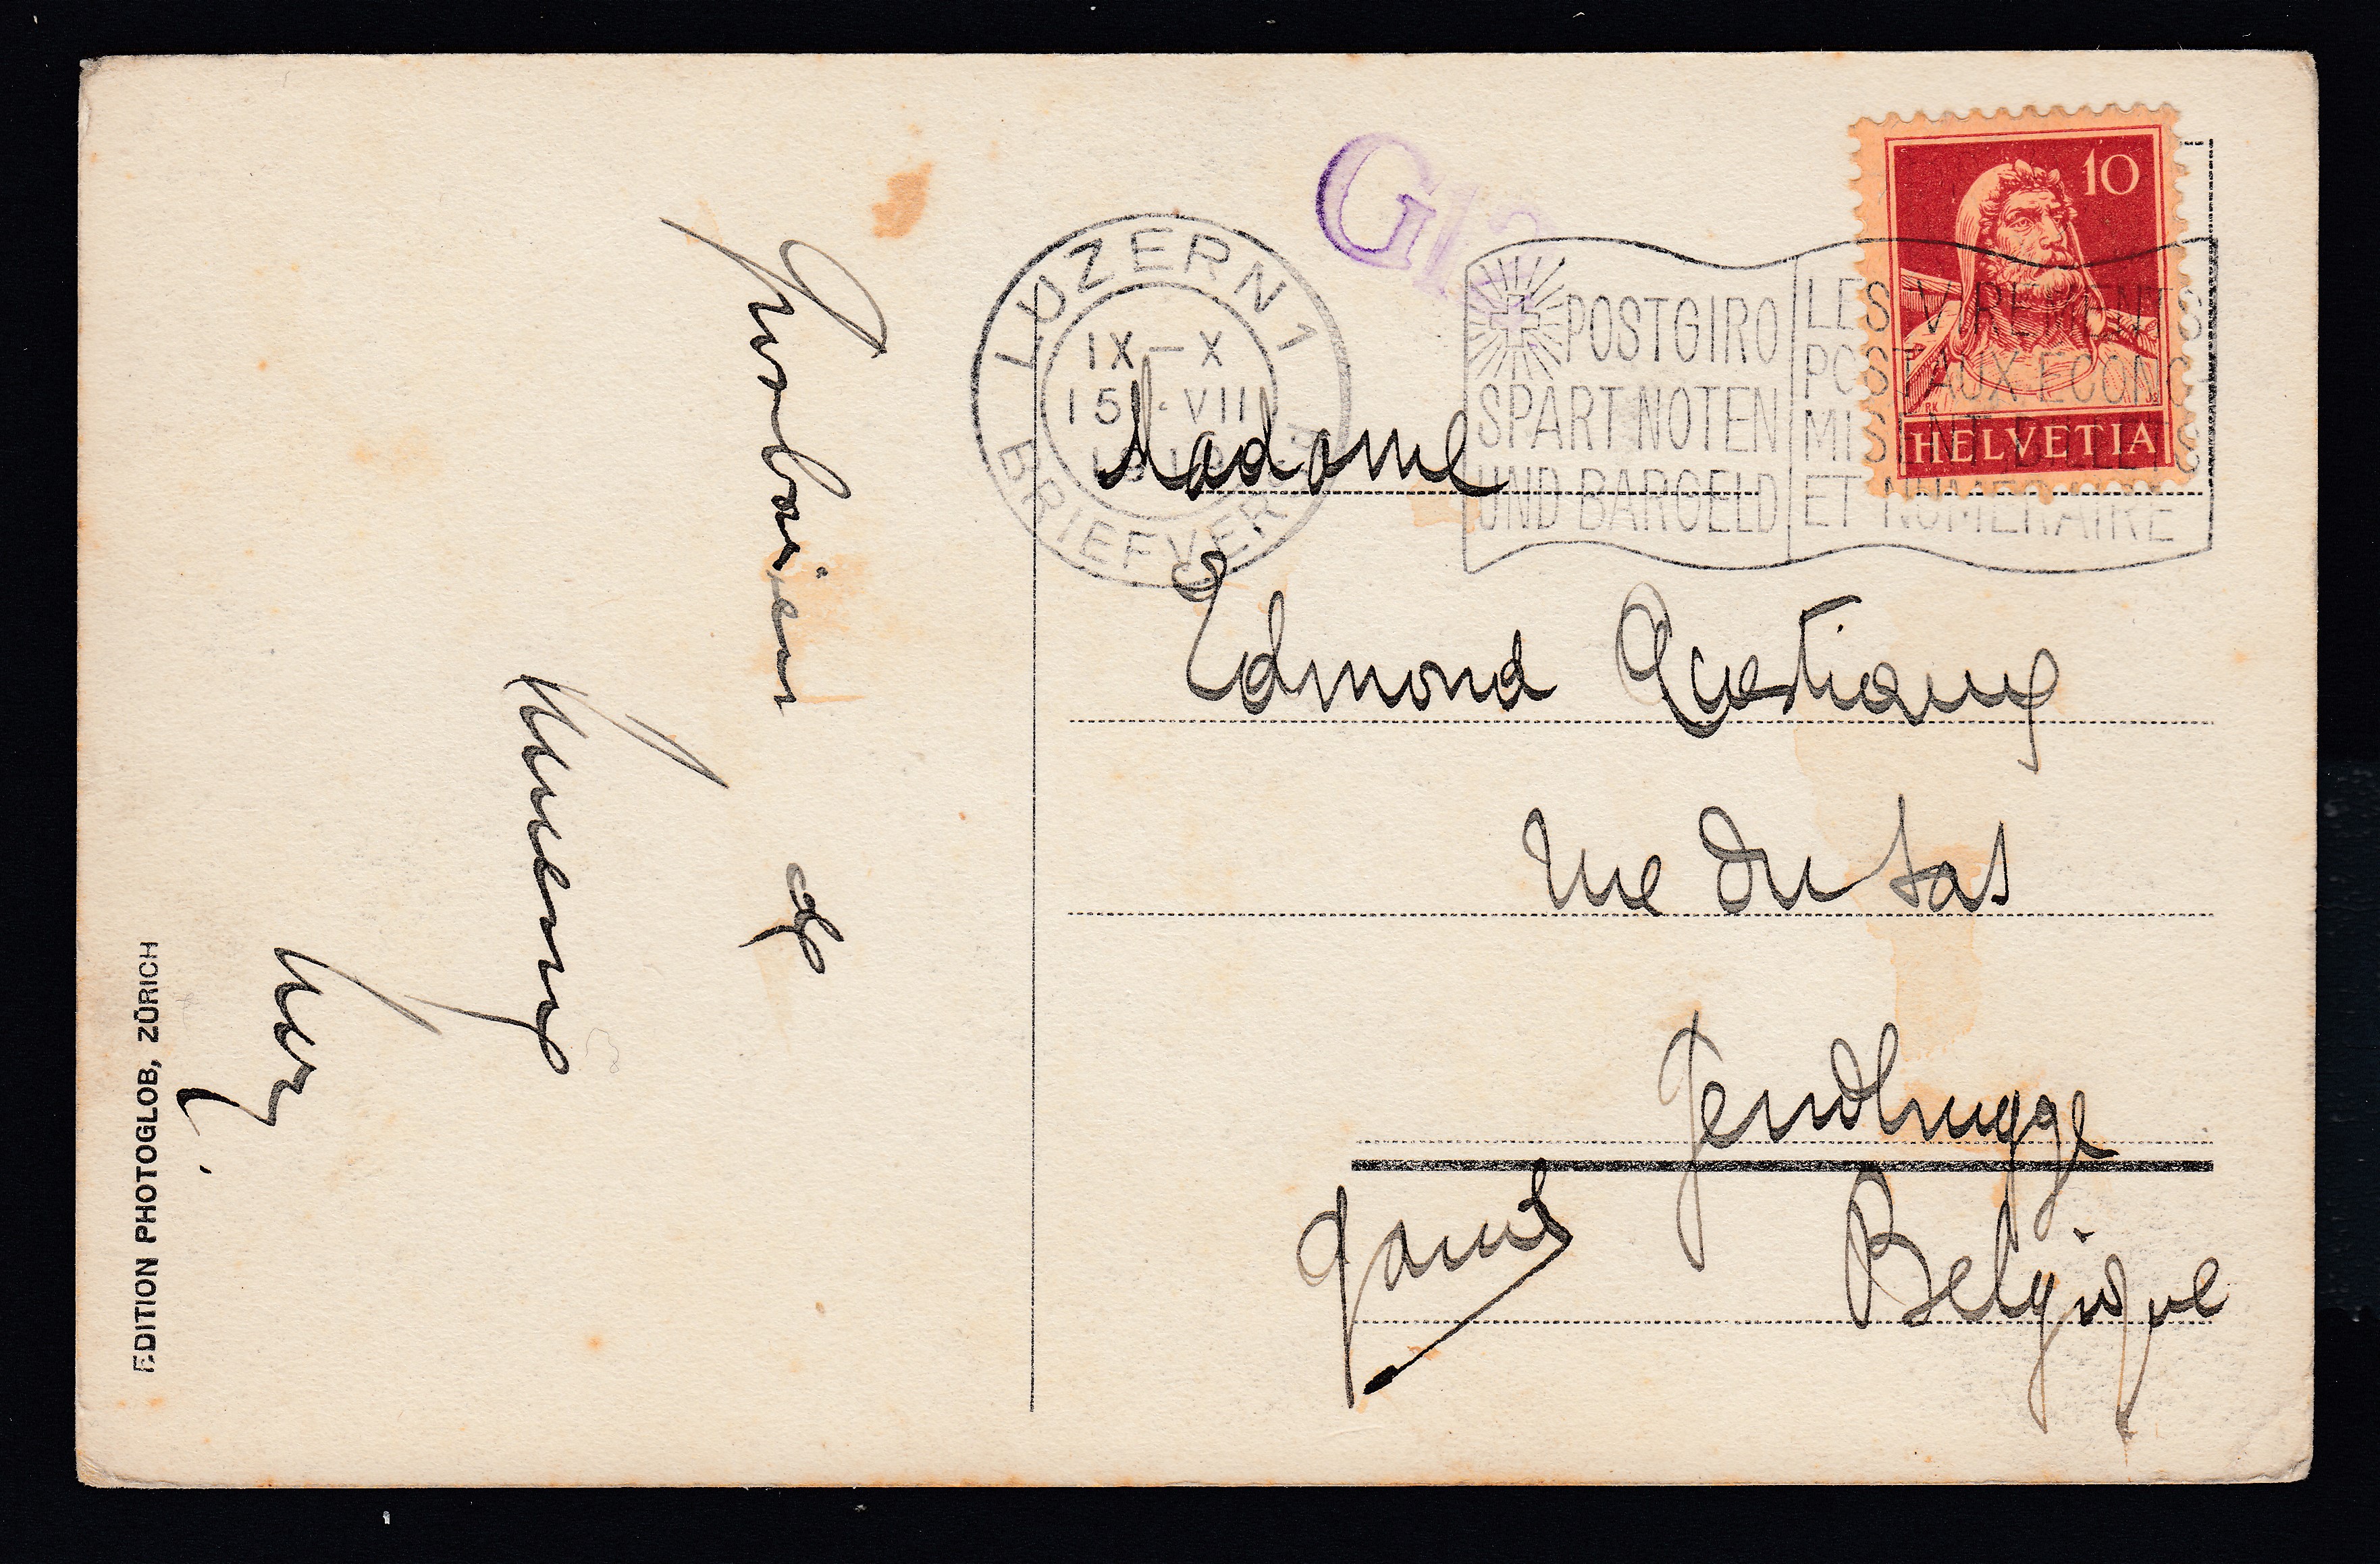 LUZERN 1
IX–X
15. VII
BRIEFVERS
POSTGIRO
SPART NOTEN
UND BARGELD
LES VIREMENTS
POSTAUX ECONO-
MISENT BILLETS
ET NUMERAIRE
10
HELVETIA
Madame
Edmond Questiaux
rue du Sas
Gendbrugge
Gand
Belgique
Souvenir de
EDITION PHOTOGLOB, ZÜRICH